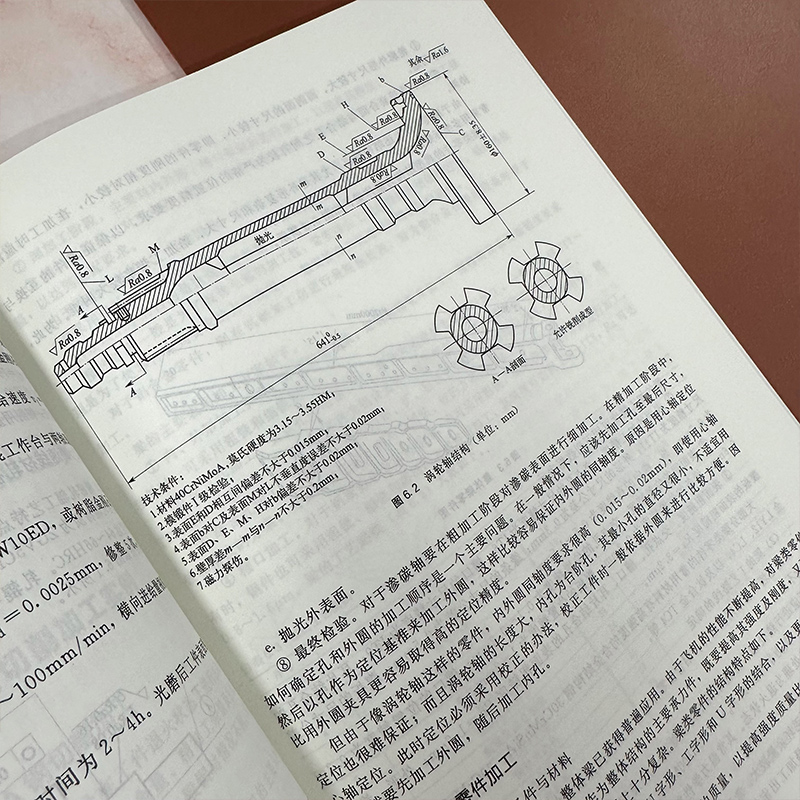 其余 Ra1.6
Ra0.8
b
H
Ra0.8
Ra0.8
E
Ra0.8
C
D
Ra0.8
Ra0.8
φ160±8.35
m
m
抛光
n
n
Ra0.8
L
M
Ra0.8
A
Ra0.8
A
641⁰₋₀.₅
A—A剖面
允许铣削成型
技术条件:
1.材料40CrNiMoA,莫氏硬度为3.15～3.55HM;
2.模锻件Ⅰ级检验;
3.表面E和D相互间偏差不大于0.015mm;
4.表面b对C及表面M对孔不垂直度误差不大于0.02mm;
5.表面D、E、M、H对b偏差不大于0.02mm;
6.壁厚差m—m与n—n不大于0.2mm;
7.磁力探伤。
图6.2 涡轮轴结构(单位:mm)
e. 抛光外表面。
⑧ 最终检验。对于渗碳轴要在粗加工阶段对渗碳表面进行细加工。在精加工阶段中,
如何确定孔和外圆的加工顺序是一个主要问题。在一般情况下,应该先加工孔至最后尺寸,
然后以孔作为定位基准来加工外圆,这样比较容易保证内外圆的同轴度。原因是用心轴定位
比用外圆夹具更容易取得高的定位精度。
但由于像涡轮轴这样的零件,内外圆同轴度要求很高(0.015～0.02mm),即使用心轴
定位也很难保证;而且涡轮轴的长度大,内孔为台阶孔,其最小孔的直径又很小,不适宜用
心轴定位。此时定位必须采用校正的办法,校正工件时一般依据外圆来进行比较方便。因
要先加工外圆,随后加工内孔。
零件加工
件与材料
整体梁已获得普遍应用。由于飞机的性能不断提高,对梁类零
作为整体结构的主要承力件,既要提高其强度及刚度,又
十分复杂。梁类零件的结构特点如下。
字形、工字形和U字形的结合,以及更
质量,以提高强度质量比
速度;
工作台与
W10ED,或树脂
=0.0025mm,修整
～100mm/min,横向进给
时间为2～4h。光磨后工件表